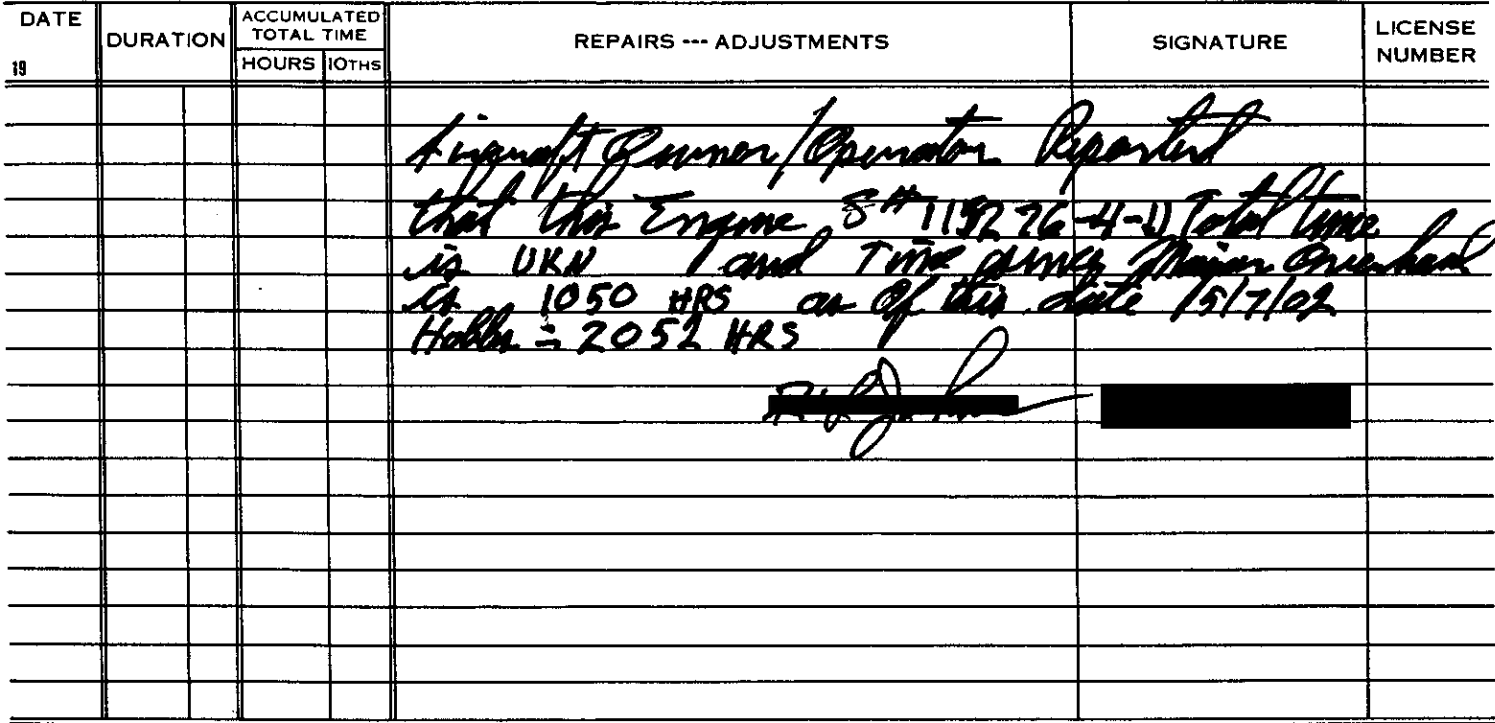 DATE
19
DURATION
ACCUMULATED
TOTAL TIME
HOURS 10THS
REPAIRS --- ADJUSTMENTS
SIGNATURE
LICENSE
NUMBER
Aircraft Owner/Operator Reported
that this Engine S# 119276-4-D Total time
is UKN and Time since Major Overhaul
is 1050 HRS as Of this date 15/7/02
Hobbs = 2052 HRS